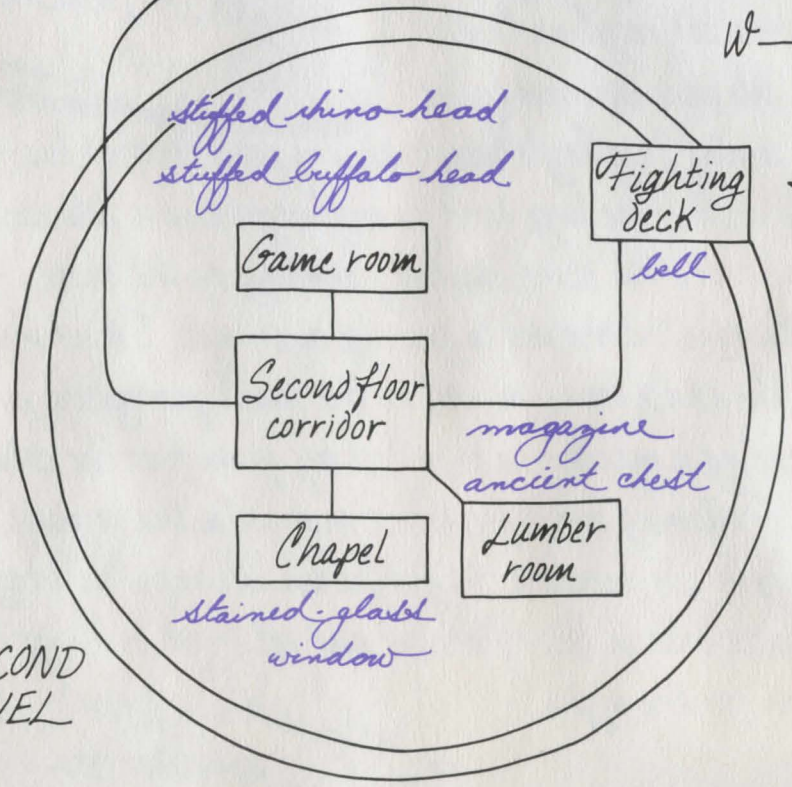 W
stuffed rhino head
stuffed buffalo head
Fighting
deck
bell
Game room
Second floor
corridor
magazine
ancient chest
Lumber
room
Chapel
stained-glass
window
COND
VEL